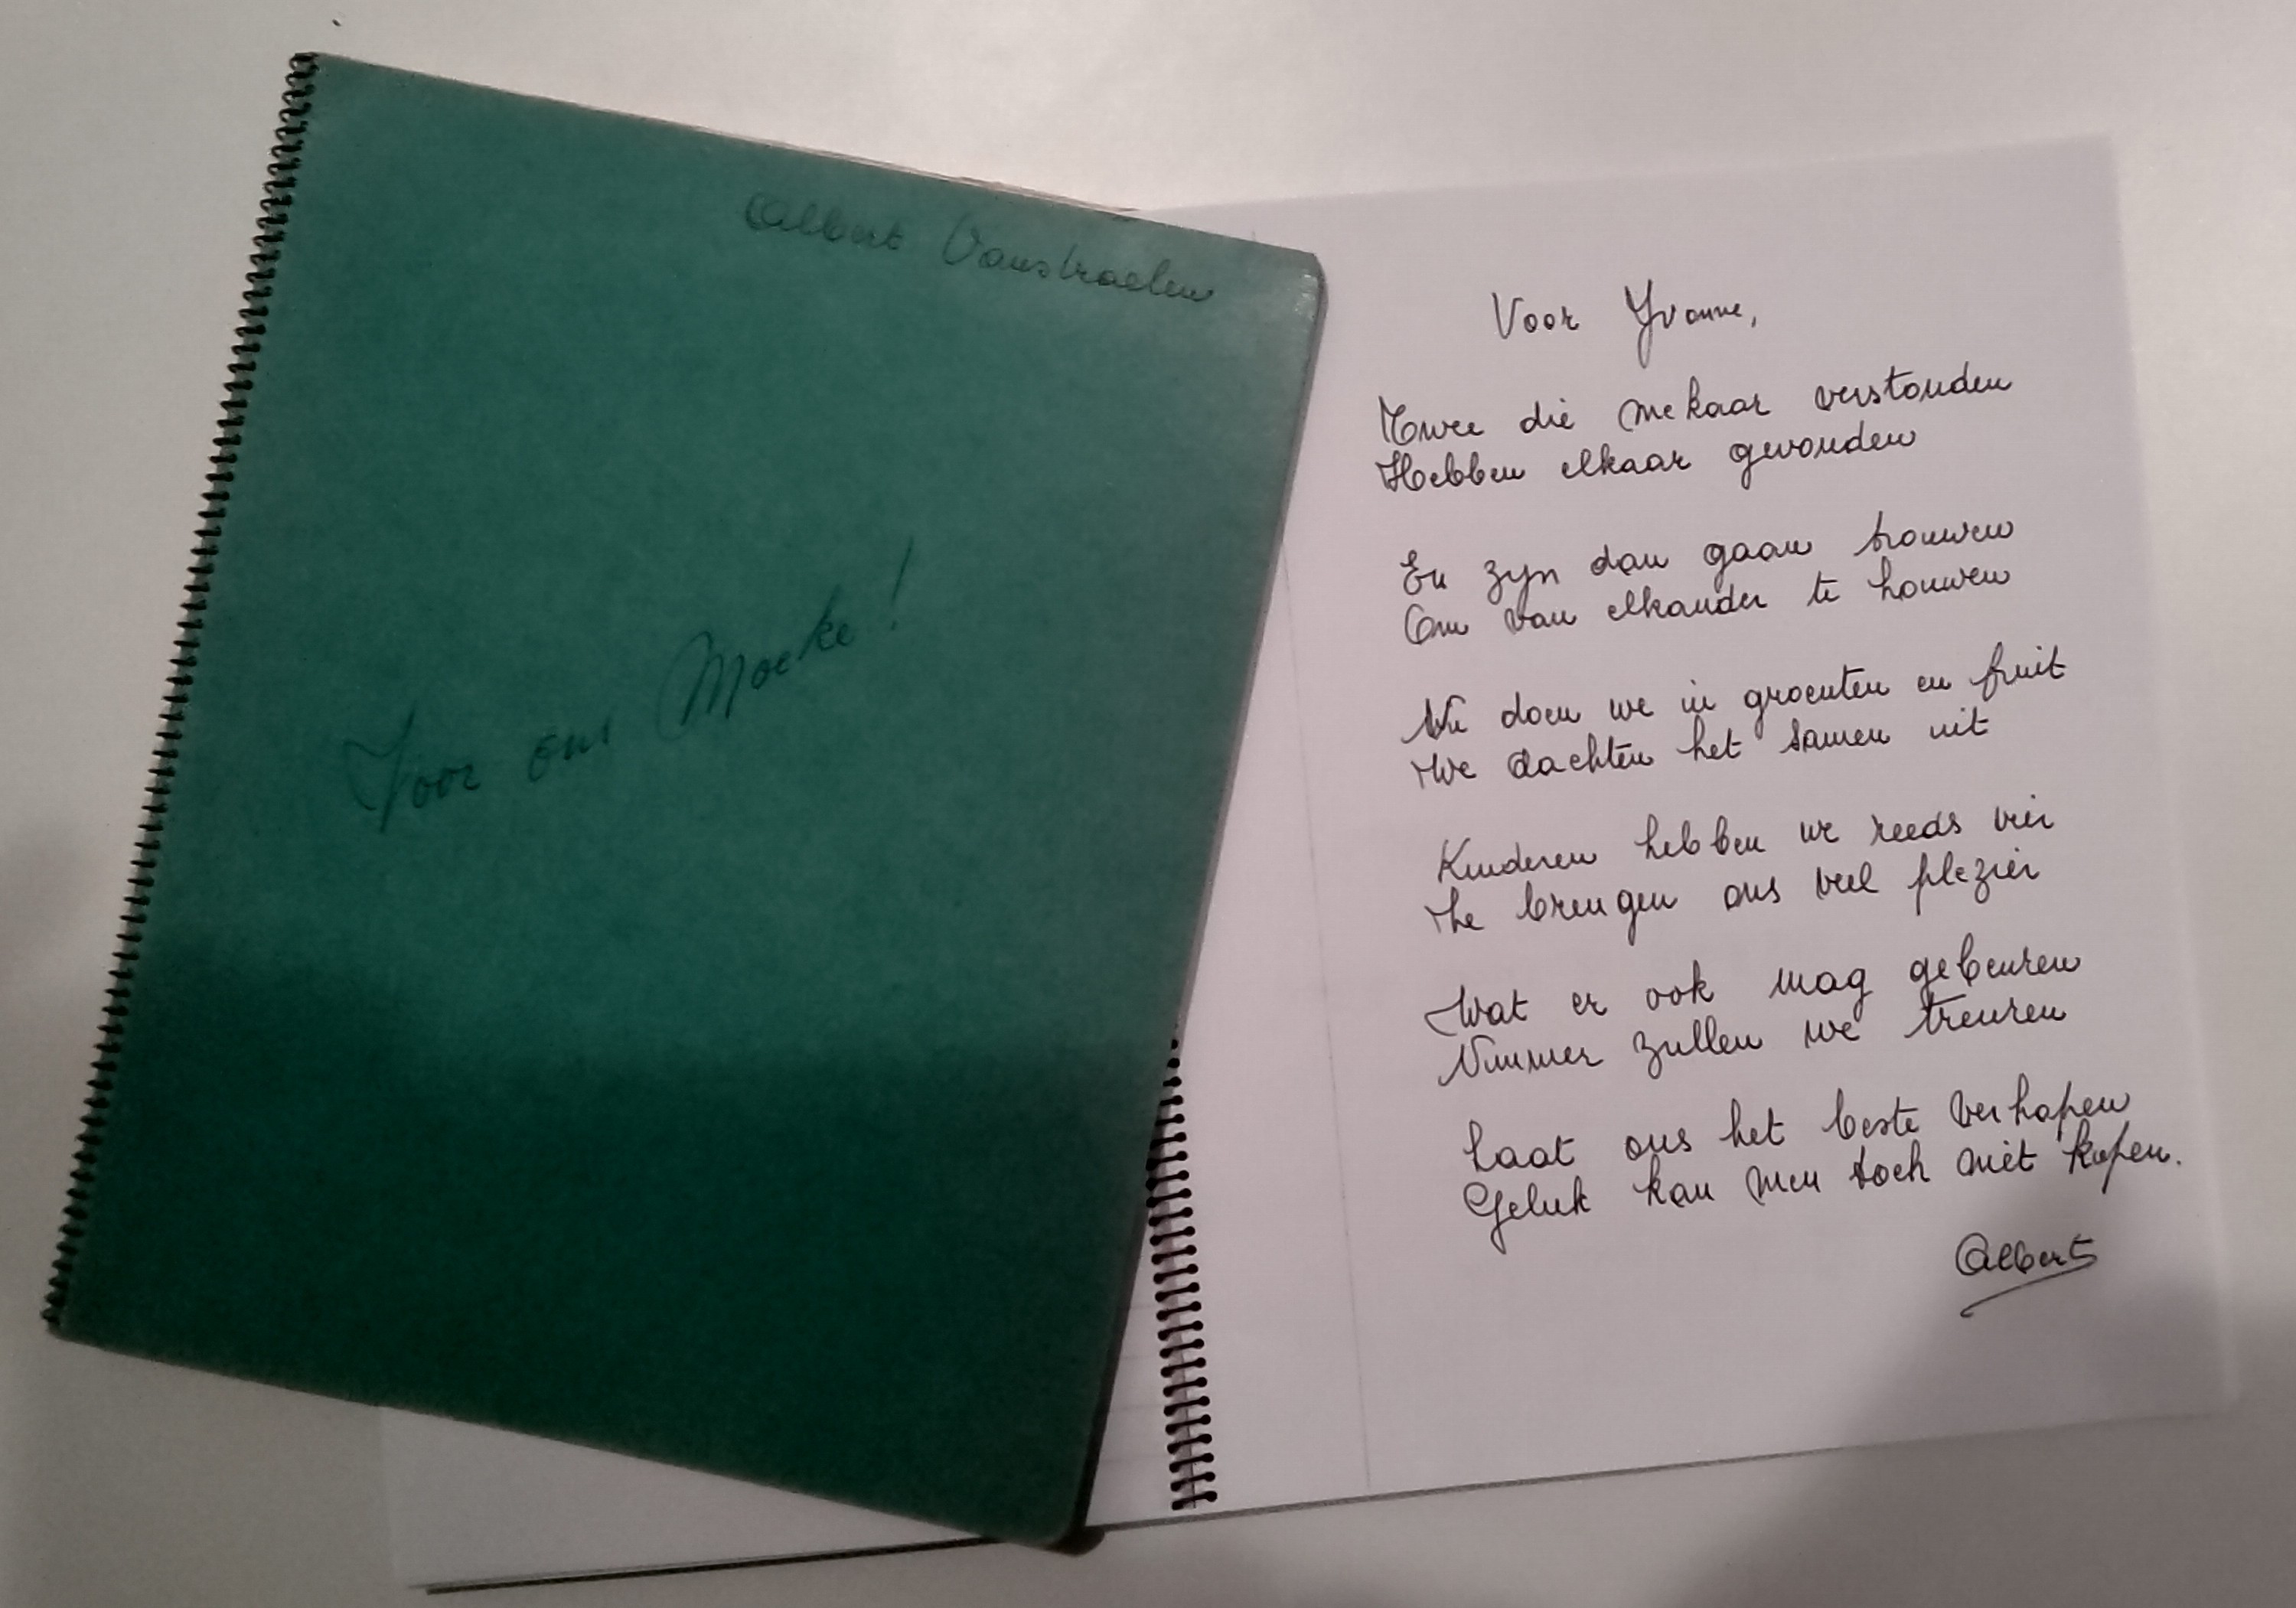 Albert Vanstraelen
Voor ons Moeke!
Voor Yvonne,
Twee die mekaar verstonden
Hebben elkaar gevonden
En zyn dan gaan trouwen
Om van elkander te houwen
Nu doen we in groenten en fruit
We dachten het samen uit
Kinderen hebben we reeds vier
Ze brengen ons veel plezier
Wat er ook mag gebeuren
Nimmer zullen we treuren
Laat ons het beste verhopen
Geluk kan men toch niet kopen.
Albert